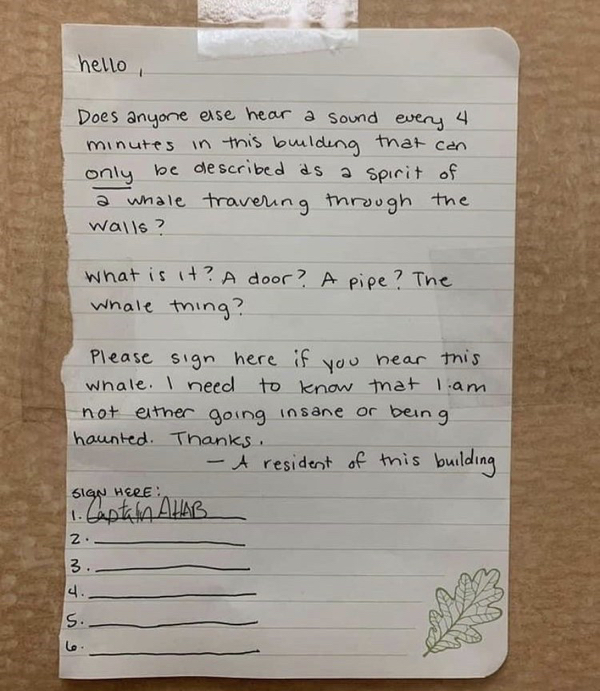 hello,
Does anyone else hear a sound every 4
minutes in this building that can
only be described as a spirit of
a whale traveling through the
walls?
What is it? A door? A pipe? The
whale thing?
Please sign here if you hear this
whale. I need to know that I am
not either going insane or being
haunted. Thanks.
— A resident of this building
SIGN HERE:
1. Captain AHAB
2.
3.
4.
5.
6.